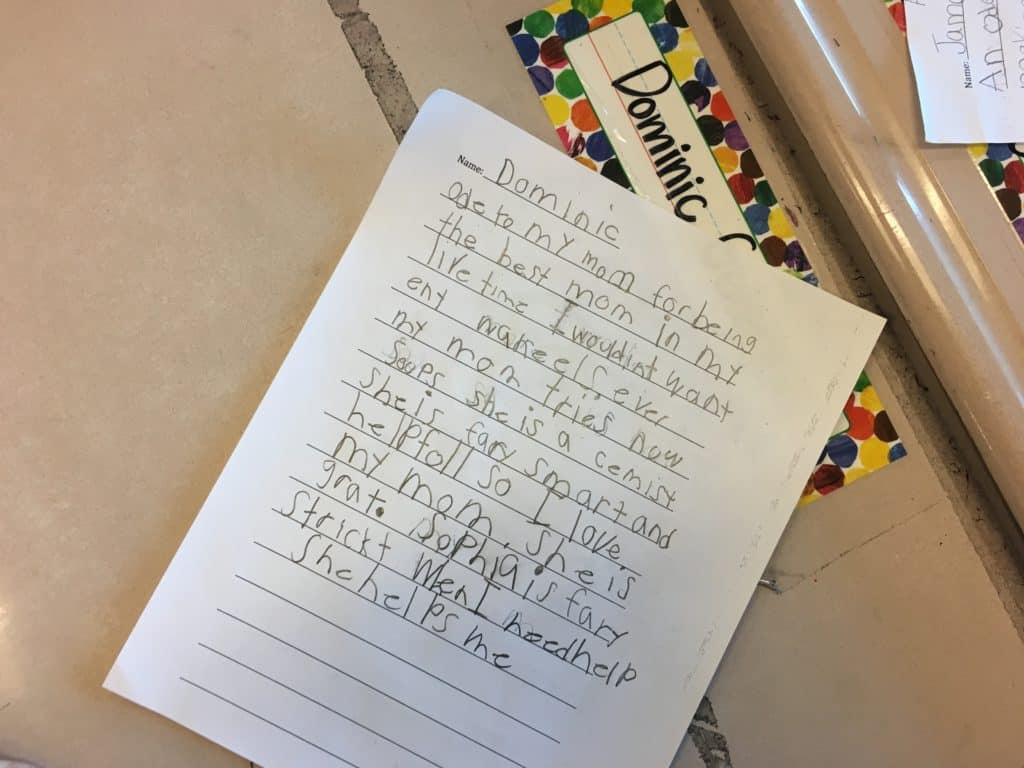 Dominic
Name: Dominic
Ode to my mom for being
the best mom in my
live time I wouldint want
eny els. ever
my mom tries now
soups she is a cemist
she is fary smart and
helpfoll so I love
my mom. she is
grat. Sophia is fary
strickt went I need help
She helps me
Name: Jan
An od